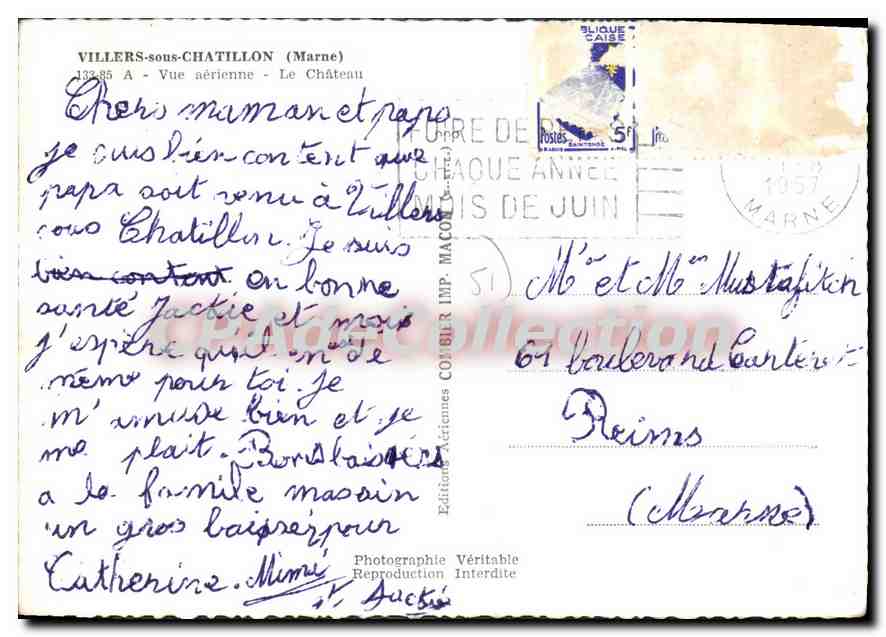 VILLERS-sous-CHATILLON (Marne)
132-85 A - Vue aérienne - Le Château
Chers maman et papa
je suis bien content que
papa soit venu à Villers
sous Chatillon. Je suis
bien content en bonne
santé Jackie et moi
j'espère qu'il en de
même pour toi. Je
m'amuse bien et je
me plait. Bons baisers
a la famile massin
un gros baiser pour
Catherine. Mimi
Jackie
Editions Aériennes COMBIER IMP. MACON
Photographie Véritable
Reproduction Interdite
BLIQUE
CAISE
Postes 5F
SAINTONGE
FOIRE DE
CHAQUE ANNÉE
MOIS DE JUIN
1957
MARNE
51
Mr et Mme
61 boulevard
Reims
(Marne)
CPAdeCollection